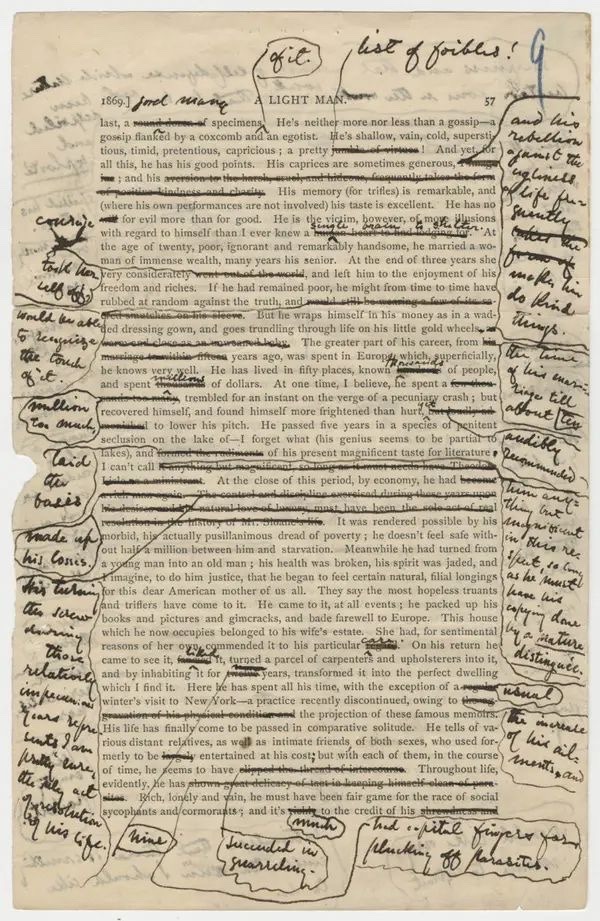 of it.
list of foibles!
9
1869.]
good many
A LIGHT MAN.
57
last, a round dozen of specimens. He's neither more nor less than a gossip—a
gossip flanked by a coxcomb and an egotist. He's shallow, vain, cold, supersti-
tious, timid, pretentious, capricious; a pretty jumble of virtues! And yet, for
all this, he has his good points. His caprices are sometimes generous,
and his aversion to the harsh, cruel, and hideous, frequently takes the form
of positive kindness and charity. His memory (for trifles) is remarkable, and
(where his own performances are not involved) his taste is excellent. He has no
for evil more than for good. He is the victim, however, of more illusions
single brain to shelter.
with regard to himself than I ever knew a human heart to find lodging for. At
the age of twenty, poor, ignorant and remarkably handsome, he married a wo-
man of immense wealth, many years his senior. At the end of three years she
very considerately went out of the world, and left him to the enjoyment of his
freedom and riches. If he had remained poor, he might from time to time have
rubbed at random against the truth, and would still be wearing a few of its
smutches on his sleeve. But he wraps himself in his money as in a wad-
ded dressing gown, and goes trundling through life on his little gold wheels,
The greater part of his career, from his
marriage to within fifteen years ago, was spent in Europe, which, superficially,
thousands
he knows very well. He has lived in fifty places, known of people,
millions
and spent thousands of dollars. At one time, I believe, he spent a few thou-
sands too many, trembled for an instant on the verge of a pecuniary crash; but
recovered himself, and found himself more frightened than hurt,
to lower his pitch. He passed five years in a species of penitent
seclusion on the lake of—I forget what (his genius seems to be partial to
lakes), and formed the rudiments of his present magnificent taste for literature;
I can't call it anything but magnificent, so long as it must needs have Theodore
Lisle as a ministrant. At the close of this period, by economy, he had become
a rich man again. The control and discipline exercised during these years upon
his desires and his natural love of luxury, must have been the sole act of real
resolution in the history of Mr. Sloane's life. It was rendered possible by his
morbid, his actually pusillanimous dread of poverty; he doesn't feel safe with-
out half a million between him and starvation. Meanwhile he had turned from
a young man into an old man; his health was broken, his spirit was jaded, and
I imagine, to do him justice, that he began to feel certain natural, filial longings
for this dear American mother of us all. They say the most hopeless truants
and triflers have come to it. He came to it, at all events; he packed up his
books and pictures and gimcracks, and bade farewell to Europe. This house
which he now occupies belonged to his wife's estate. She had, for sentimental
care
reasons of her own, commended it to his particular On his return he
liked
came to see it, fancied it, turned a parcel of carpenters and upholsterers into it,
and by inhabiting it for years, transformed it into the perfect dwelling
which I find. Here he has spent all his time, with the exception of a regular
winter's visit to New York—a practice recently discontinued, owing to
of his physical condition and the projection of these famous memoirs.
His life has finally come to be passed in comparative solitude. He tells of va-
rious distant relatives, as well as intimate friends of both sexes, who used for-
merly to be largely entertained at his cost; but with each of them, in the course
of time, he seems to have slipped the thread of intercourse. Throughout life,
evidently, he has shown great delicacy of tact in keeping himself clean of para-
sites. Rich, lonely and vain, he must have been fair game for the race of social
sycophants and cormorants; and it's to the credit of his shrewdness and
much
courage
took her
self off
would be able
to recognize
the touch
of it.
million
too much,
laid
the
bases
made up
his losses.
His turning
the screw
during
those
relatively
impecunious
years repre
sents I am
pretty sure,
the only act
of resolution
of his life.
nine
succeeded in
quarreling.
and his
rebellion
against the
ugliness
of life fre-
quently
takes the
form of
makes him
do kind
things.
the time
of his marri-
age till
about ten
audibly
recommended
him any-
thing but
magnificent
in this re-
spect, so long
as he must
have his
copying done
by a nature
distinguée.
usual
the increase
of his ail-
ments, and
had capital fingers for
plucking off parasites.